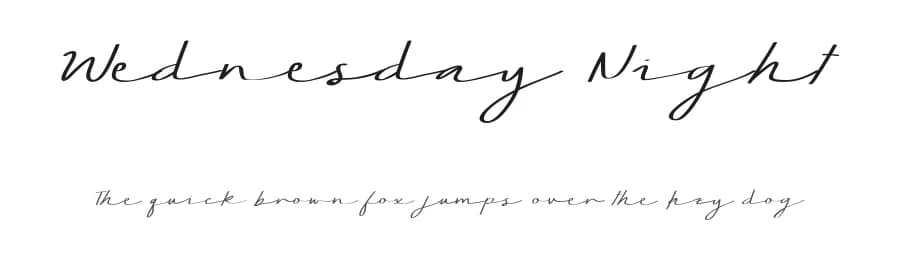 Wednesday Night
The quick brown fox jumps over the lazy dog